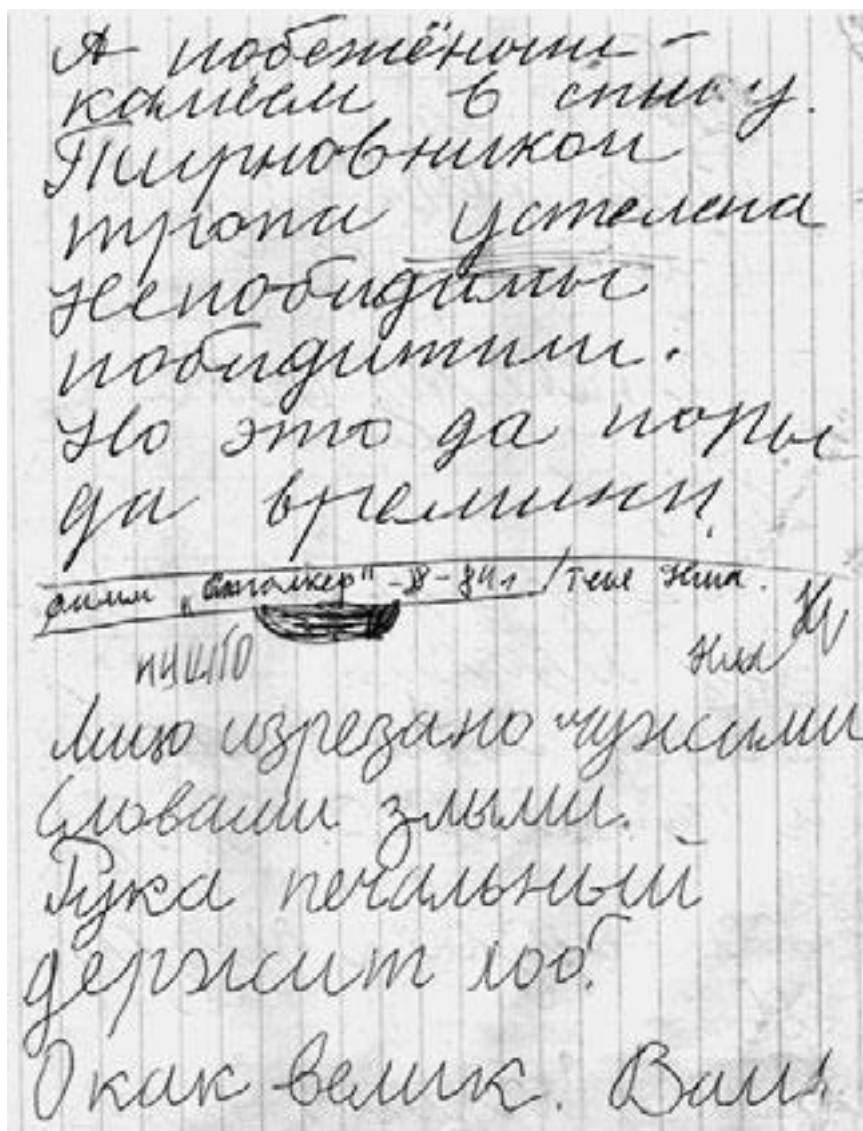 А побежёным -
камнем в спину.
Тирновником
тропа устелена
Непобидимы
побидитили.
Но это да поры
да времини.
"Сталкер" - 84 г / Теме Нина.
Лицо изрезано чужими
словами злыми.
Рука печальный
держит лоб.
О как велик. Ваш